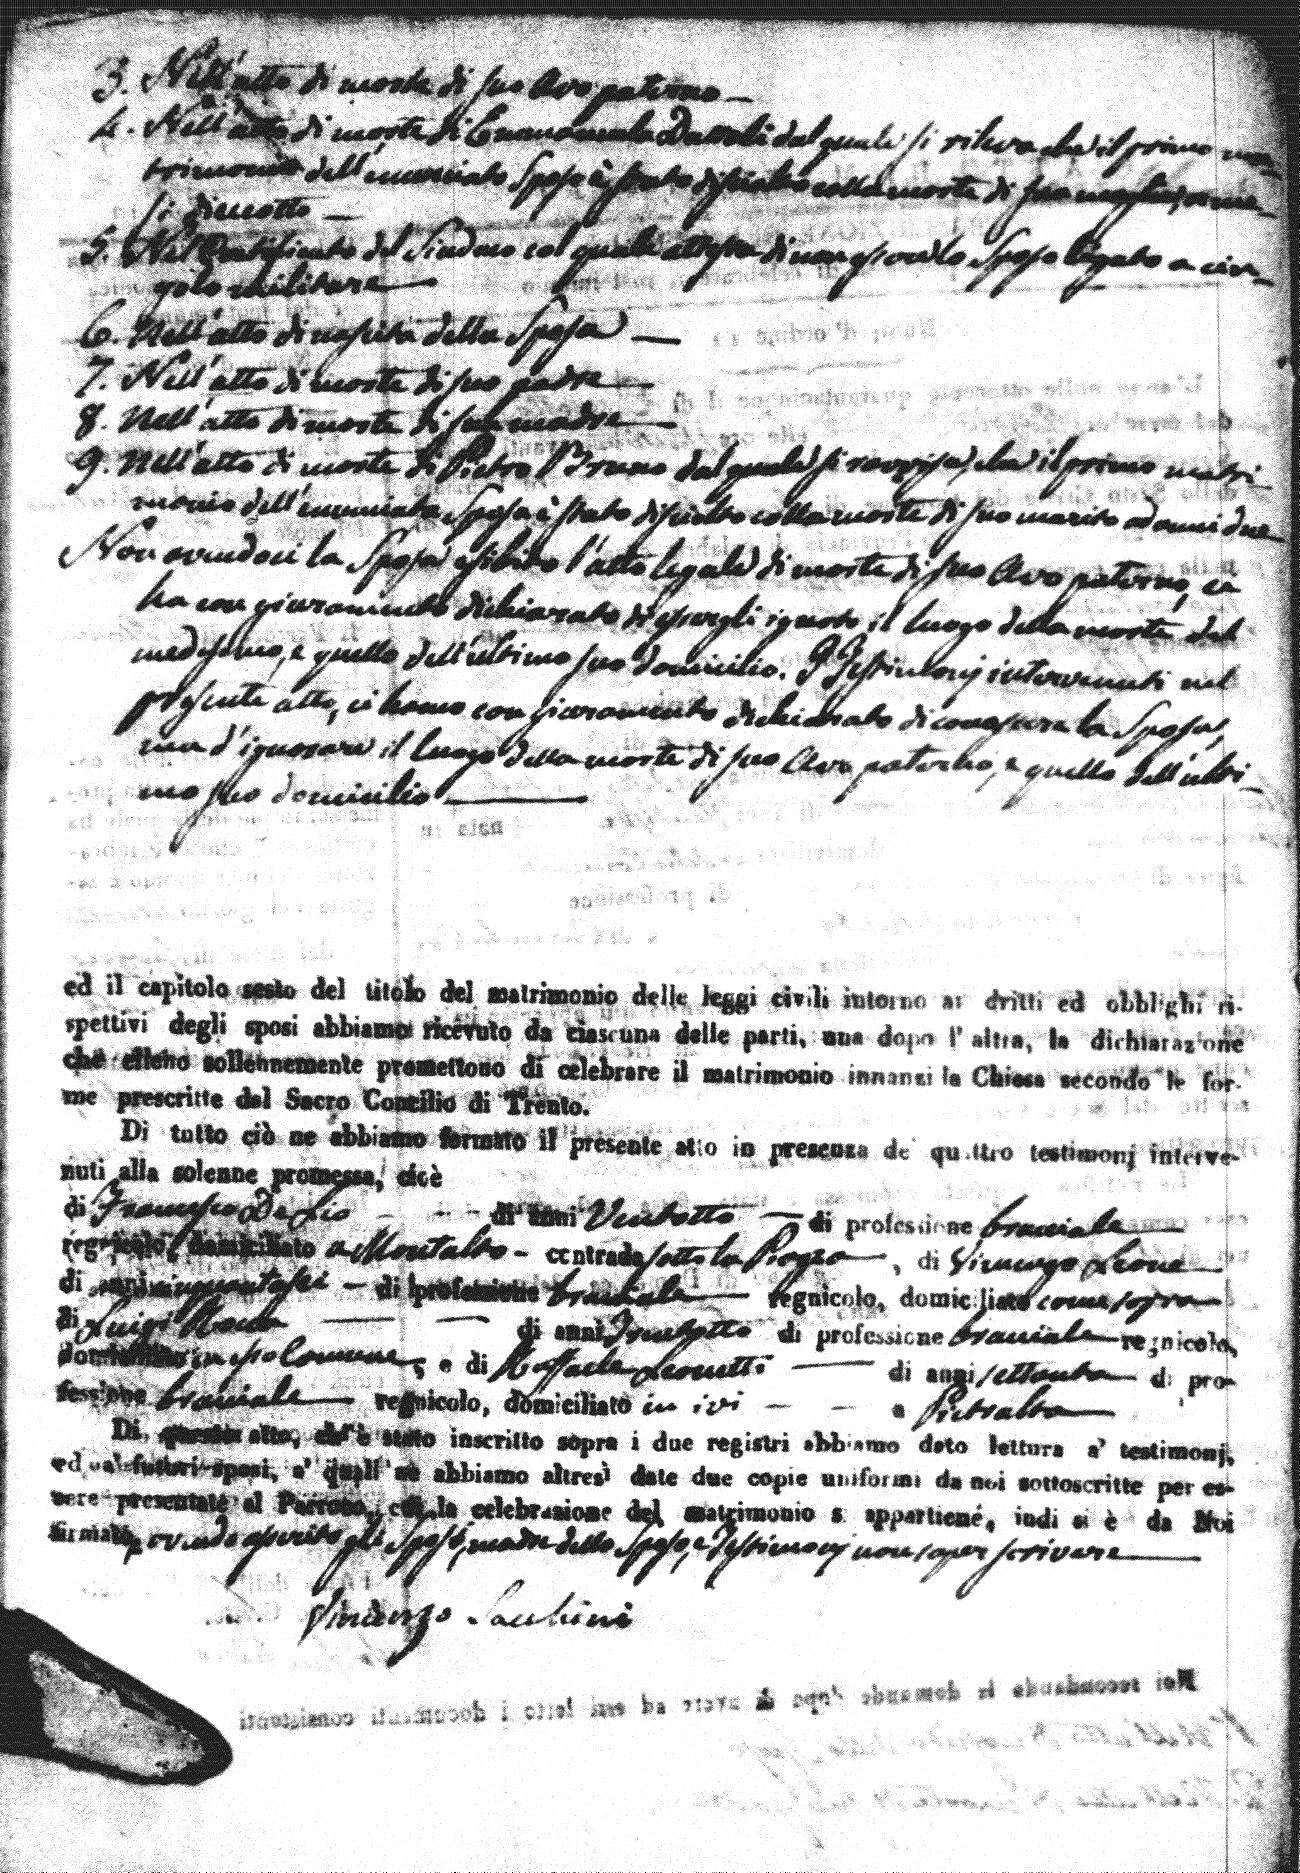 3. Nell'atto di morte di suo Avo paterno —
4. Nell'atto di morte di Emanuela dal quale si rileva che il primo ma-
trimonio dell'enunciato Sposo è stato disciolto colla morte di sua moglie, a me-
si diciotto —
5. Nel Certificato del Sindaco col quale attesta di non esser lo Sposo legato a vin-
golo militare —
6. Nell'atto di nascita della Sposa —
7. Nell'atto di morte di suo padre —
8. Nell'atto di morte di sua madre —
9. Nell'atto di morte di Pietro Bruno dal quale si ravvisa, che il primo matri-
monio dell'enunciata Sposa è stato disciolto colla morte di suo marito ad anni due
Non avendoci la Sposa esibito l'atto legale di morte di suo Avo paterno, ci
ha con giuramento dichiarato di essergli ignoto il luogo della morte del
medesimo, e quello dell'ultimo suo domicilio. I Testimonj intervenuti nel
presente atto, ci hanno con giuramento dichiarato di conoscere la Sposa,
ma d'ignorare il luogo della morte di suo Avo paterno, e quello dell'ulti-
mo suo domicilio —
ed il capitolo sesto del titolo del matrimonio delle leggi civili intorno ai dritti ed obblighi ri-
spettivi degli sposi abbiamo ricevuto da ciascuna delle parti, una dopo l'altra, la dichiarazione
che elleno sollennemente promettono di celebrare il matrimonio innanzi la Chiesa secondo le for-
me prescritte dal Sacro Concilio di Trento.
Di tutto ciò ne abbiamo formato il presente atto in presenza de' quattro testimonj interve-
nuti alla solenne promessa, cioè
di Francesco De Lio — di anni Ventotto — di professione bracciale —
regnicolo, domiciliato a Montalto - contrada sotto la Piazza — , di Vincenzo Leone —
di anni cinquantasei — di professione bracciale — regnicolo, domiciliato come sopra —
di Luigi — di anni Trentotto di professione bracciale — regnicolo,
domiciliato in esso Comune, e di Raffaele Leonetti — di anni settanta — di pro-
fessione bracciale — regnicolo, domiciliato in ivi — a Pietralta —
Di questo atto, ch'è stato inscritto sopra i due registri abbiamo dato lettura a' testimonj,
ed a' futuri sposi, a' quali ne abbiamo altresì date due copie uniformi da noi sottoscritte per es-
sere presentate al Parroco, cui la celebrazione del matrimonio s'appartiene, indi si è da Noi
firmato, avendo asserito gli Sposi, madre dello Sposo, e Testimonj non saper scrivere —
Vincenzo Sacchini
Noi secondando le domande dopo di avere ad essi letto i documenti consistenti